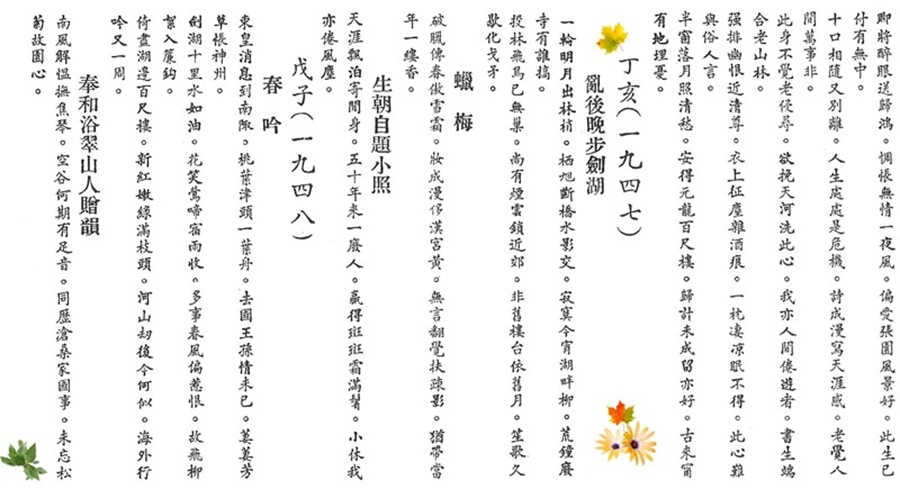 即將醉眼送歸鴻。惆悵無情一夜風。偏愛張園風景好。此生已
付有無中。
十口相隨又別離。人生處處是危機。詩成漫寫天涯感。老覺人
間萬事非。
此身不覺老侵尋。欲挽天河洗此心。我亦人間倦遊者。書生端
合老山林。
强排幽恨近清尊。衣上征塵雜酒痕。一枕凄凉眠不得。此心難
與俗人言。
半窗落月照清愁。安得元龍百尺樓。歸計未成留亦好。古來甯
有地埋憂。
丁亥(一九四七)
亂後晚步劍湖
一輪明月出林梢。栖旭斷橋水影交。寂寞今宵湖畔柳。荒鐘廢
寺有誰搞。
投林飛鳥已無巢。尚有煙雲鎖近郊。非舊樓台依舊月。笙歌久
歇化戈矛。
蠟梅
破臘傳春傲雪霜。妝成漫侈漢宮黃。無言翻覺扶疎影。猶帶當
年一縷香。
生朝自題小照
天涯飄泊寄閒身。五十年來一廢人。贏得斑斑霜滿鬢。小休我
亦倦風塵。
戊子(一九四八)
春吟
東皇消息到南陬。桃葉津頭一葉舟。去國王孫情未已。萋萋芳
草悵神州。
劍湖十里水如油。花笑鶯啼宿雨收。多事春風偏惹恨。故飛柳
絮入簾鈎。
倚盡湖邊百尺樓。新紅嫩綠滿枝頭。河山劫後今何似。海外行
吟又一周。
奉和浴翠山人贈韻
南風解慍撫焦琴。空谷何期有足音。同歷滄桑家國事。未忘松
菊故園心。